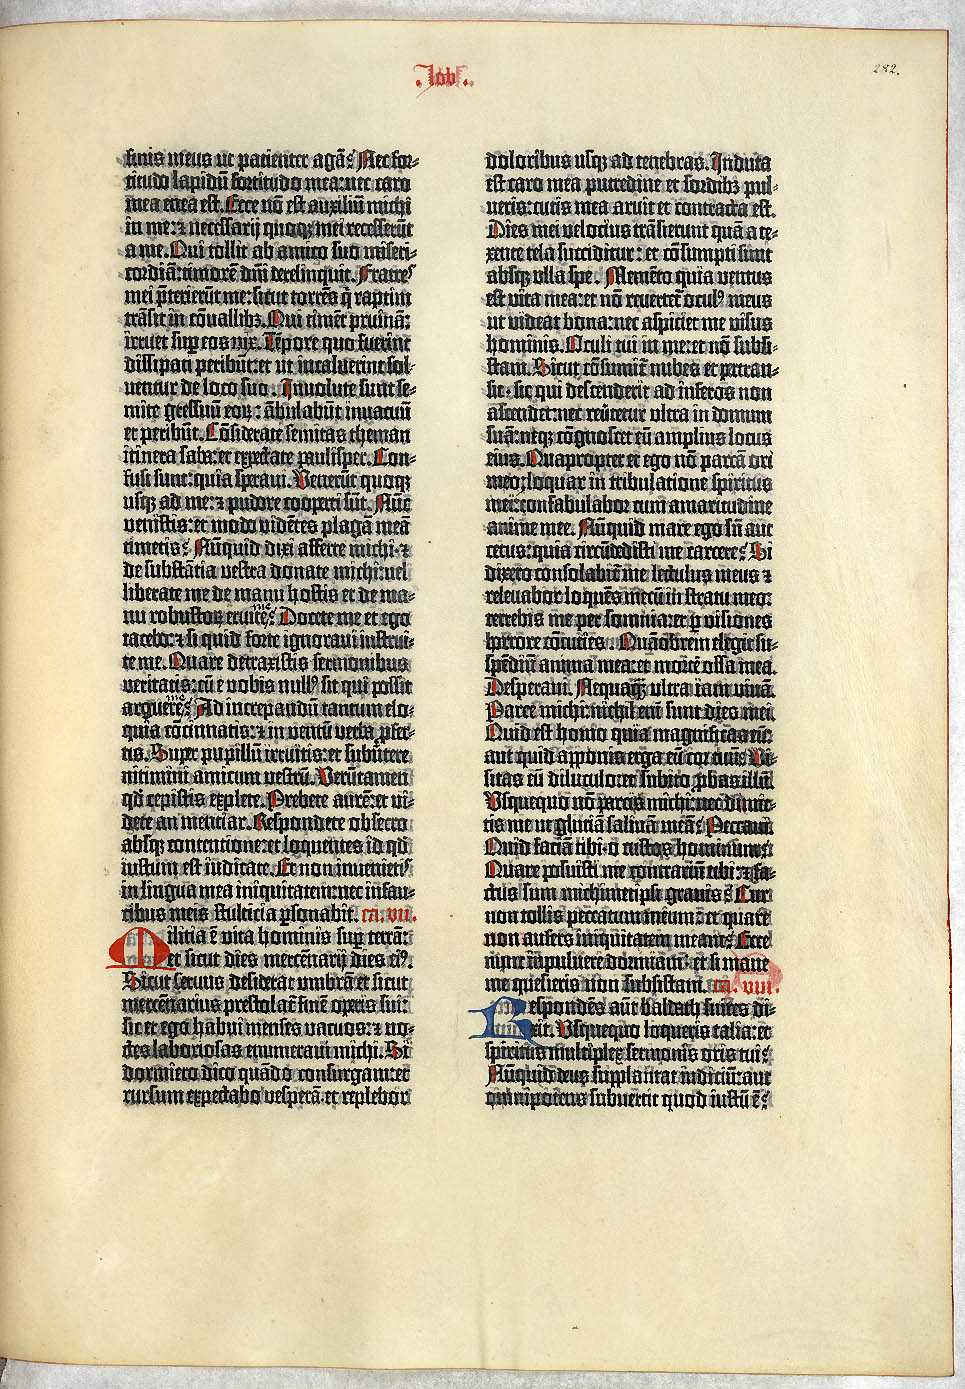 .Job.
282.
finis meus ut patienter agā? Nec for-
titudo lapidū fortitudo mea: nec caro
mea enea est. Ecce nō est auxiliū michi
in me: ⁊ necessarij quoqꝫ mei recesserūt
a me. Qui tollit ab amico suo miseri-
cordiā: timorē dn̄i derelinquit. Fratres
mei p̄terierūt me: sicut torrēs q̄ raptim
trāsit in cōvallibꝫ. Qui timēt pruinā:
irruet sup̄ eos nix. Tēpore quo fuerint
dissipati peribūt: et ut incaluerint sol-
ventur de loco suo. Involute sunt se-
mite gressuū eoꝝ: ābulabūt in vacuū
et peribūt. Cōsiderate semitas theman
itinera saba: et expectate paulisper. Con-
fusi sunt: quia speravi. Venerūt quoqꝫ
usqꝫ ad me: ⁊ pudore cooperti sūt. Nūc
venistis: et modo vidētes plagā meā
timetis. Nūquid dixi afferte michi· ⁊
de substātia vestra donate michi: vel
liberate me de manu hostis et de ma-
nu robustoꝝ eruite me? Docete me et ego
tacebo: ⁊ si quid forte ignoravi instrui-
te me. Quare detraxistis sermonibus
veritatis: cū e vobis nullꝰ sit qui possit
arguere me? Ad increpandū tantum elo-
quia cōcinnatis: ⁊ in ventū verba ꝓfer-
tis. Super pupillū irruitis: et subūtere
nitimini amicum vestrū. Verūtamen
qd̄ cepistis explete. Prebete aurē: et vi-
dete an mentiar. Respondete obsecro
absqꝫ contentione: et loquentes id qd̄
iustum est iudicate. Et non invenietis
in lingua mea iniquitatem: nec in fau-
cibus meis stulticia ꝑsonabit. ca. vii.
Militia ē vita hominis sup̄ terrā:
et sicut dies mercēnarij dies eiꝰ.
Sicut servus desiderat umbrā et sicut
mercēnarius prestolat̄ finē operis sui:
sic et ego habui menses vacuos: ⁊ no-
ctes laboriosas enumeravi michi. Si
dormiero dico quādo consurgam: et
rursum expectabo vesperā· et replebor
doloribus usqꝫ ad tenebras. Induta
est caro mea putredine et sordibꝫ pul-
veris: cutis mea aruit et contracta est.
Dies mei velocius trāsierunt quā a te-
xente tela succiditur: et cōsumpti sunt
absqꝫ ulla spe. Memēto quia ventus
est vita mea: et nō revertet̄ oculꝰ meus
ut videat bona: nec aspiciet me visus
hominis. Oculi tui in me: et nō subsi-
stam. Sicut cōsumit̄ nubes et pertran-
sit· sic qui descenderit ad inferos non
ascendet: nec revertetur ultra in domum
suā: neqꝫ cōgnoscet eū amplius locus
eius. Quapropter et ego nō parcā ori
meo: loquar in tribulatione spiritus
mei: confabulabor cum amaritudine
anime mee. Nūquid mare ego sū aut
cetus: quia circūdedisti me carcere? Si
dixero consolabit̄ me lectulus meus ⁊
relevabor loquēs mecū in stratu meo:
terrebis me per somnia: et p̄ visiones
horrore cōcuties. Quāobrem elegit su-
spēdiū anima mea: et mortē ossa mea.
Desperavi. Nequaqꝫ ultra iam vivā.
Parce michi: nichil enī sunt dies mei.
Quid est homo quia magnificas eū:
aut quid apponis erga eū cor tuū? Vi-
sitas eū diluculo: et subito ꝓbas illū.
Usquequo nō parcis michi: nec dimit-
tis me ut glutiā salivā meā? Peccavi.
Quid faciā tibi· o custos hominum?
Quare posuisti me contrariū tibi: ⁊ fa-
ctus sum michimetipsi gravis? Cur
non tollis peccatum meum: et quare
non aufers iniquitatem meam? Ecce
nunc in pulvere dormiam: et si mane
me quesieris non subsistam. ca. viii.
Respondēs aūt baldath suites di-
xit. Usquequo loqueris talia: et
spiritus multiplex sermonis oris tui?
Nūquid deus supplantat iudiciū: aut
omnipotens subvertit quod iustū ē?